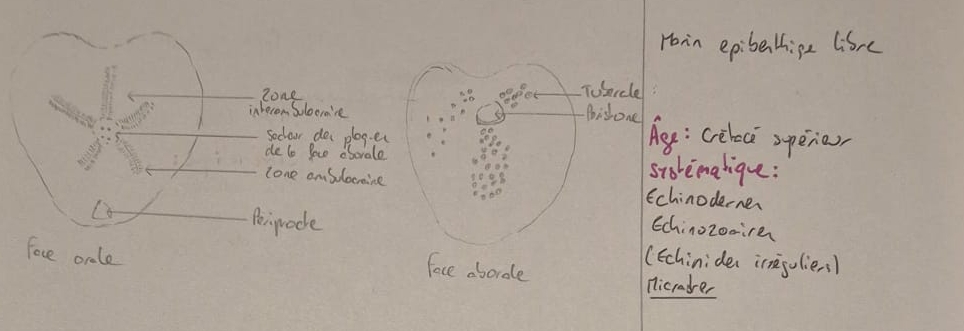 zone
interambulacraire
secteur des plaques
de la face aborale
zone ambulacraire
Périprocte
Face orale
Tubercule
Péristone
Face aborale
Marin epibenthique libre
Âge : Crétacé supérieur
Systématique :
Echinodermes
Echinozoaires
(Echinides irréguliers)
Micraster